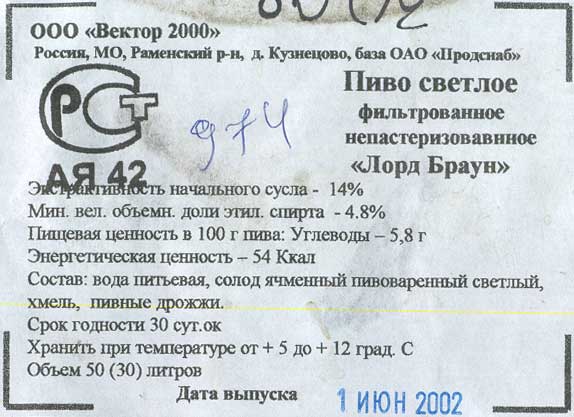 ООО «Вектор 2000»
Россия, МО, Раменский р-н, д. Кузнецово, база ОАО «Продснаб»
РСТ
АЯ 42
974
Пиво светлое
фильтрованное
непастеризовавнное
«Лорд Браун»
Экстрактивность начального сусла - 14%
Мин. вел. объемн. доли этил. спирта - 4.8%
Пищевая ценность в 100 г пива: Углеводы – 5,8 г
Энергетическая ценность – 54 Ккал
Состав: вода питьевая, солод ячменный пивоваренный светлый,
хмель, пивные дрожжи.
Срок годности 30 сут.ок
Хранить при температуре от + 5 до + 12 град. С
Объем 50 (30) литров
Дата выпуска 1 ИЮН 2002